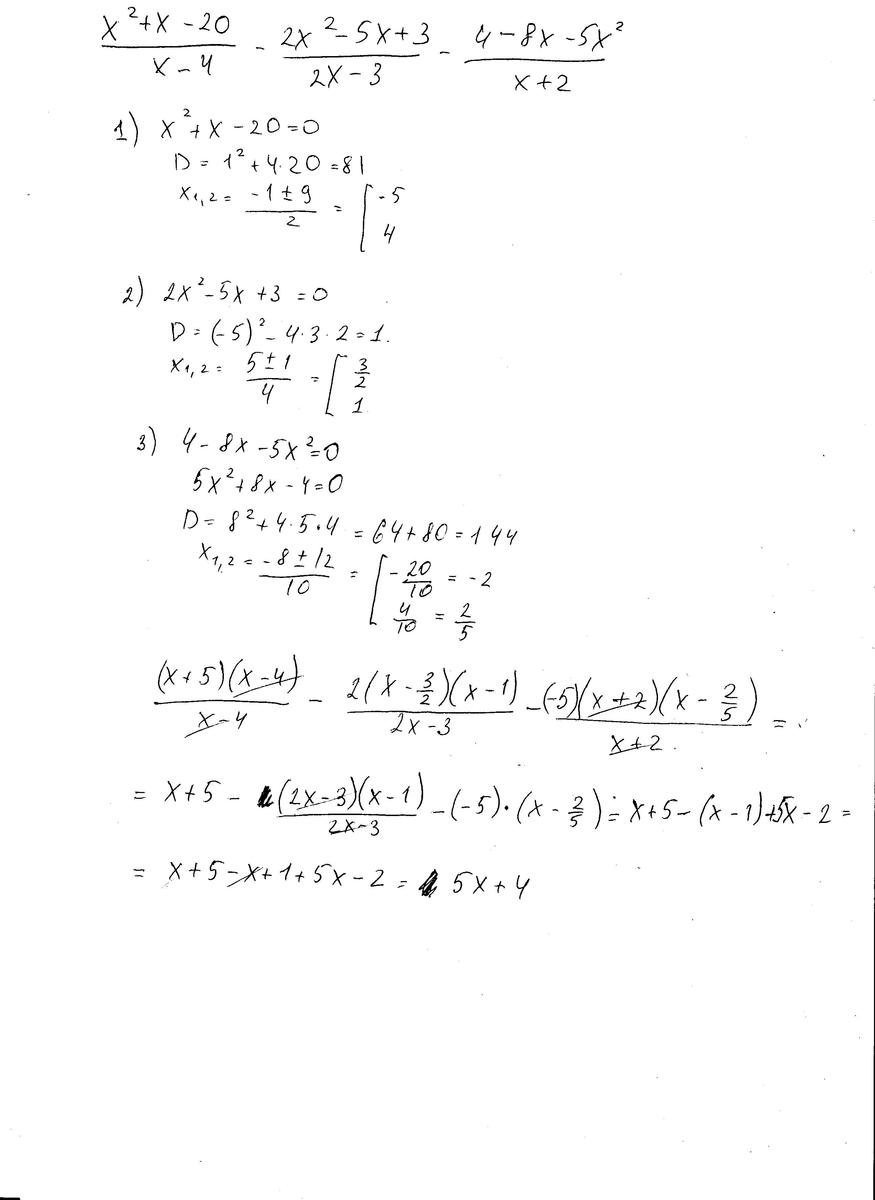 (x²+x-20)/(x-4) - (2x²-5x+3)/(2x-3) - (4-8x-5x²)/(x+2)
1) x²+x-20=0
D = 1²+4·20=81
x₁,₂ = (-1±9)/2 = [-5
4
2) 2x²-5x+3=0
D=(-5)²-4·3·2=1.
x₁,₂ = (5±1)/4 = [3/2
1
3) 4-8x-5x²=0
5x²+8x-4=0
D=8²+4·5·4=64+80=144
x₁,₂ = (-8±12)/10 = [-20/10 = -2
4/10 = 2/5
((x+5)(x-4))/(x-4) - (2(x-3/2)(x-1))/(2x-3) - ((-5)(x+2)(x-2/5))/(x+2) =
= x+5 - ((2x-3)(x-1))/(2x-3) - (-5)·(x-2/5) = x+5-(x-1)+5x-2 =
= x+5-x+1+5x-2 = 5x+4